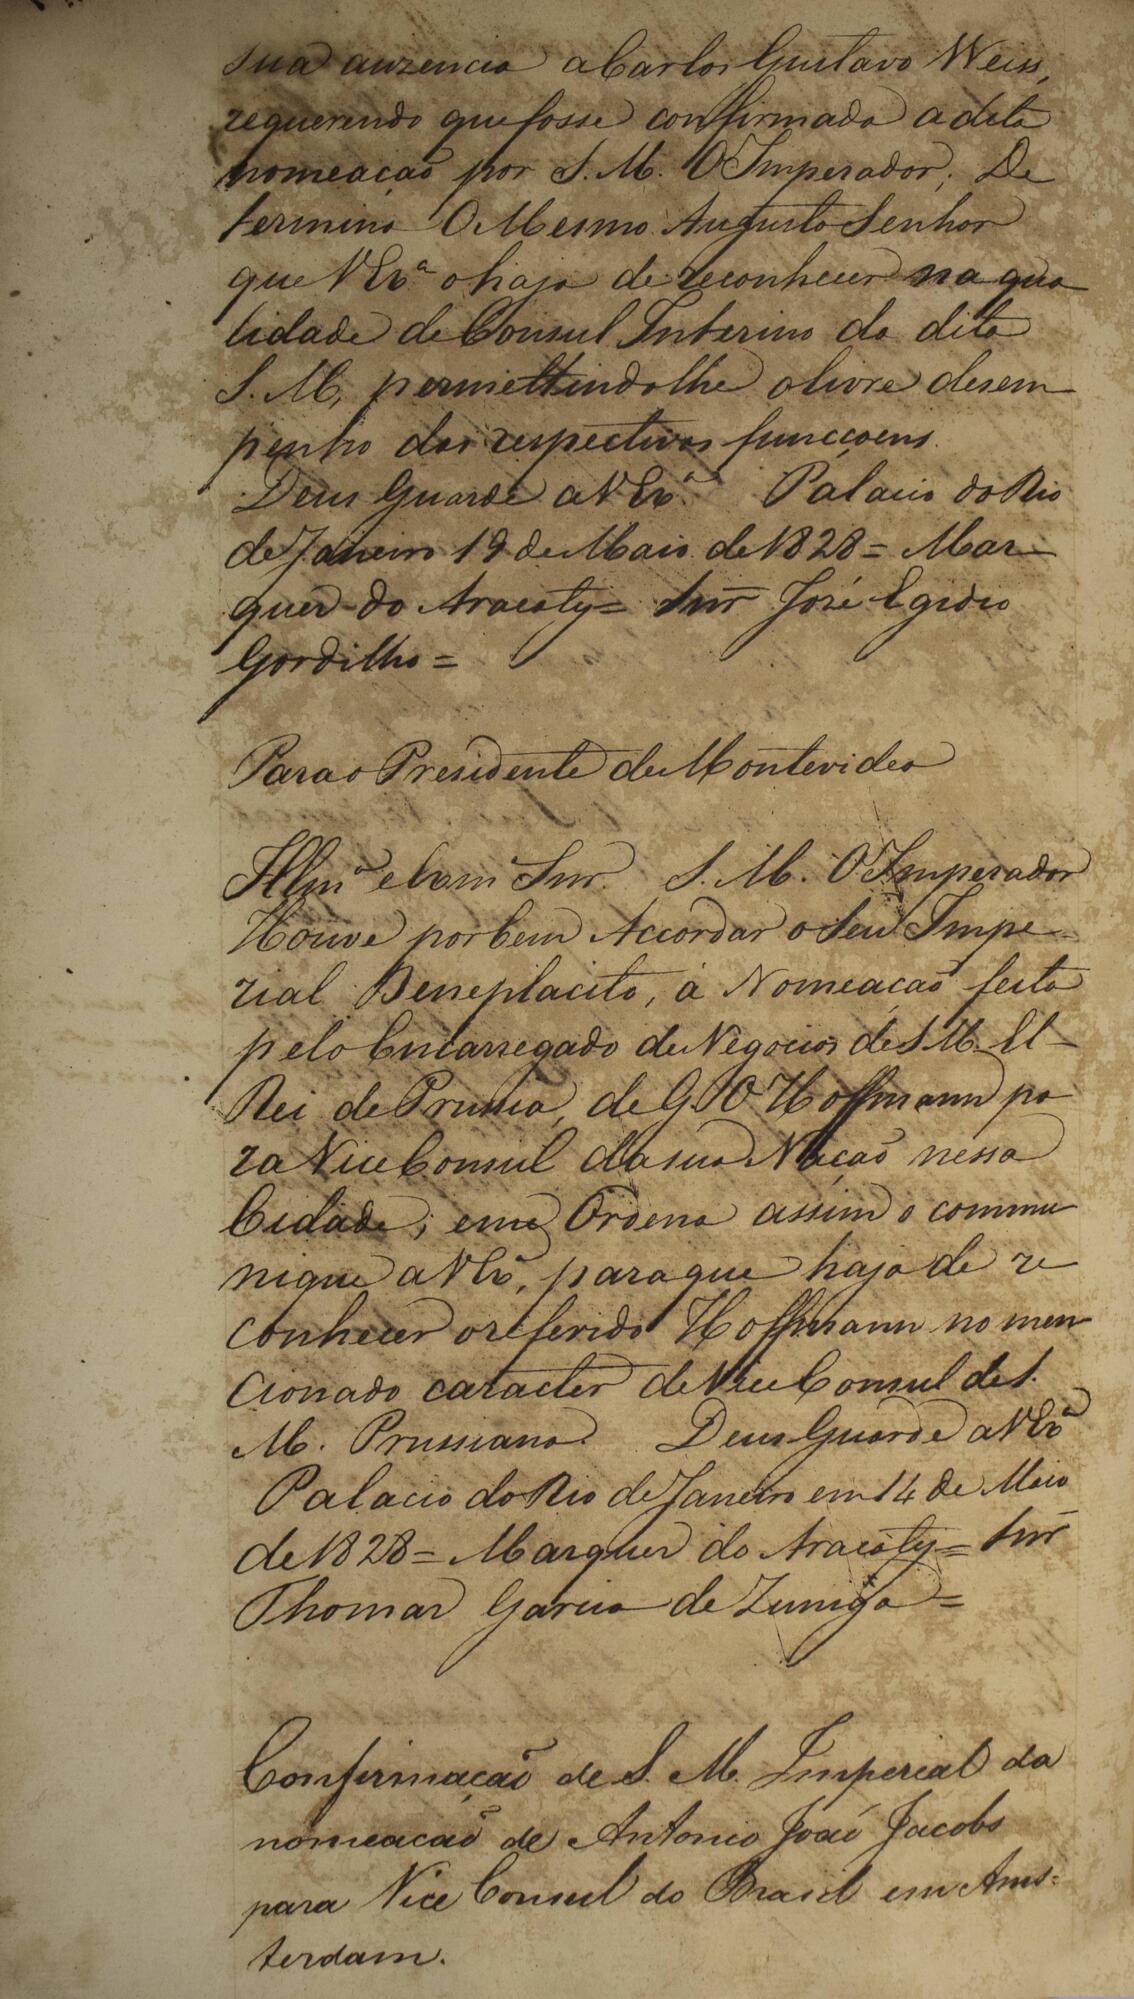 sua auzencia a Carlos Gustavo Weiss,
requerendo que fosse confirmada a dita
nomeação por S. M. O Imperador; De
termina O Mesmo Augusto Senhor
que V Exª o haja de reconhecer na qua
lidade de Consul Interino da dita
S. M, permettindolhe o livre desem
penho das respectivas funccoens.
Deus Guarde a V Exª. Palacio do Rio
de Janeiro 19 de Maio de 1828 = Mar-
quez do Aracaty = Snr José Egidio
Gordilho =
Para o Presidente de Montevideo
Illmº e Exmº Snr. S. M. O Imperador
Houve por bem Accordar o Seu Impe-
rial Beneplacito, á Nomeação feita
pelo Encarregado de Negocios de S M El
Rei de Prussia, de G. O Hoffmann pa
ra Vice Consul da sua Nação nessa
Cidade; e me Ordena assim o commu
nique a V Exª, para que haja de re
conhecer o referido Hoffmann no men
cionado caracter de Vice Consul de S.
M. Prussiana. Deus Guarde a V Exª
Palacio do Rio de Janeiro em 14 de Maio
de 1828 = Marquez do Aracaty = Snr
Thomaz Garcia de Zuniga =
Confirmação de S. M. Imperial da
nomeação de Antonio João Jacobs
para Vice Consul do Brasil em Ams-
terdam.